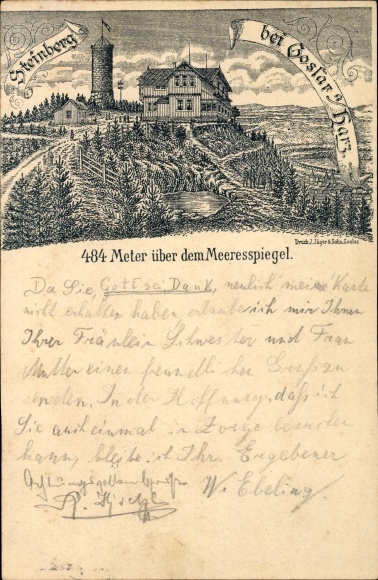 Steinberg
bei Goslar a/Harz.
Druck J. Jäger & Sohn, Goslar
484 Meter über dem Meeresspiegel.
Da Sie, Gott sei Dank, neulich meine Karte
nicht erhalten haben erlaube ich mir Ihnen
Ihrer Fräulein Schwester und Frau
Mutter einen freundlichen Gruß zu
senden. In der Hoffnung, daß ich
Sie auch einmal in Zorge besuchen
kann, bleibe ich Ihr Ergebener
W. Ebeling.